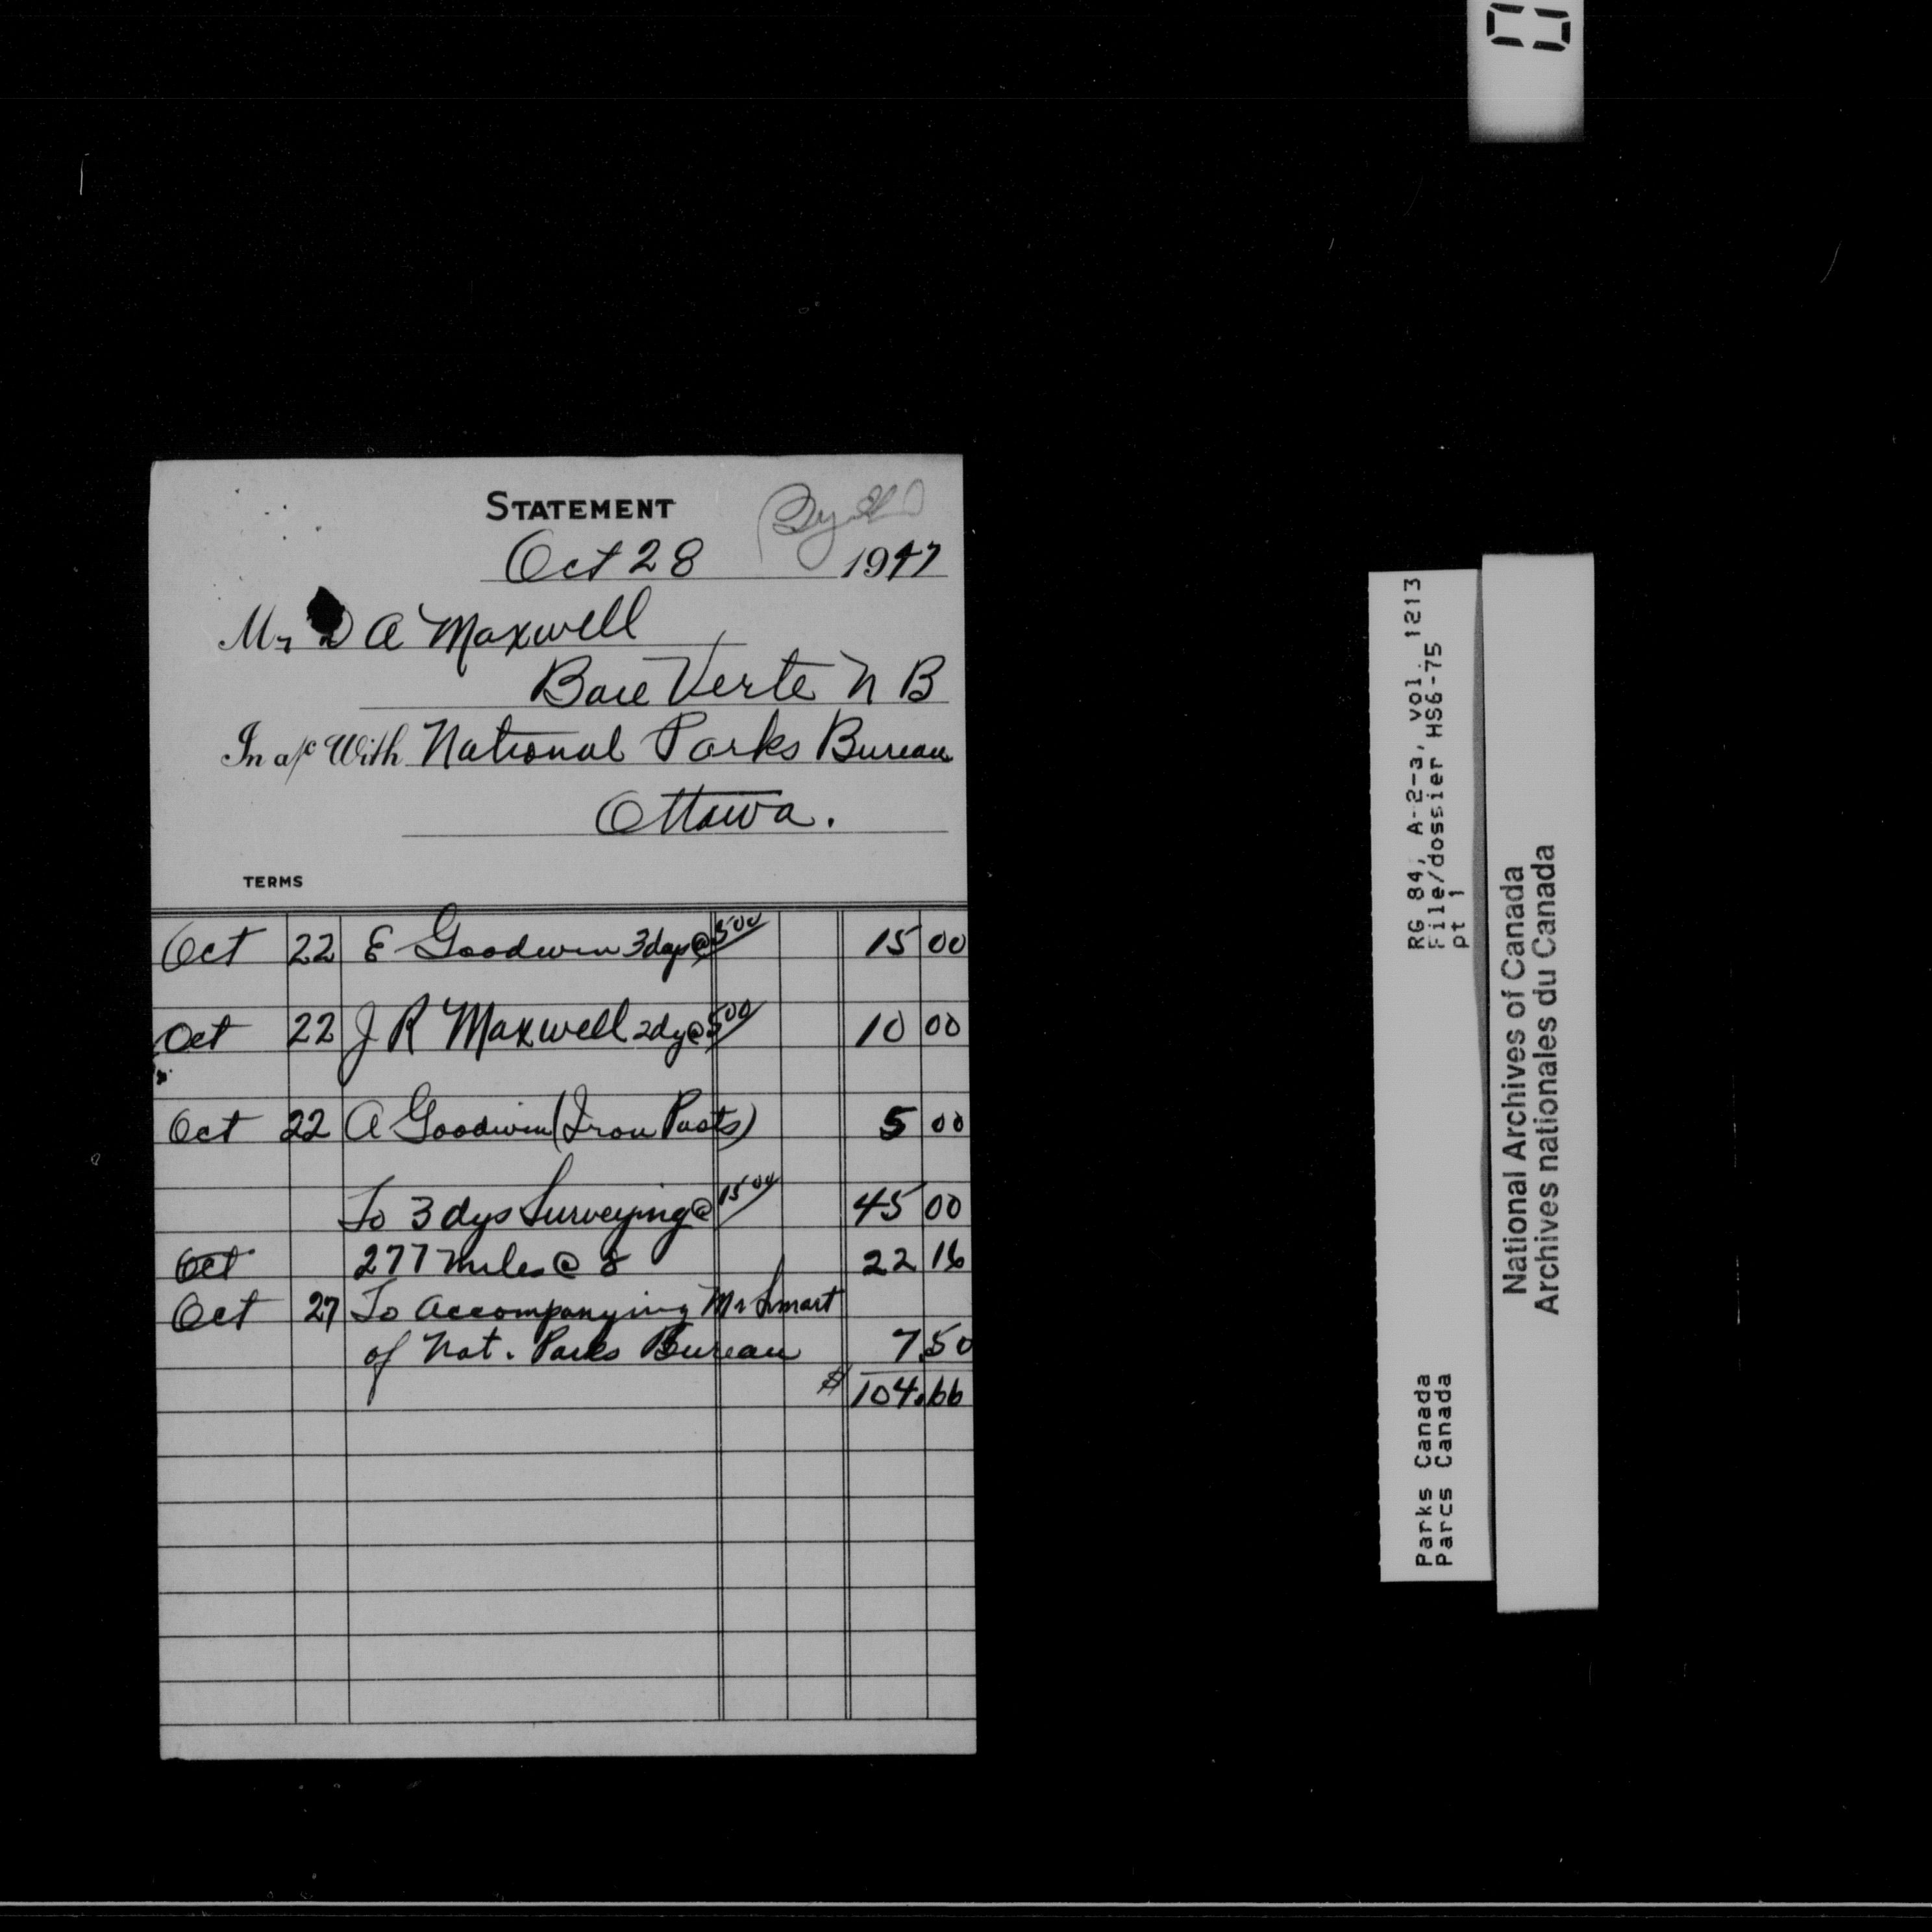 STATEMENT
Oct 28 1947
Mr D A Maxwell
Baie Verte N B
In a/c With National Parks Bureau
Ottawa.
TERMS
Oct 22 E Goodwin 3 days @ 5 00 15 00
Oct 22 J R Maxwell 2 dy @ 5 00 10 00
Oct 22 A Goodwin (Iron Posts) 5 00
To 3 dys Surveying @ 15 00 45 00
Oct 277 miles @ 8 22 16
Oct 27 To Accompanying Mr Smart
of Nat. Parks Bureau 7 50
$ 104.66
RG 84, A-2-3, vol. 1213
File/dossier HS6-75
pt 1
Parks Canada
Parcs Canada
National Archives of Canada
Archives nationales du Canada